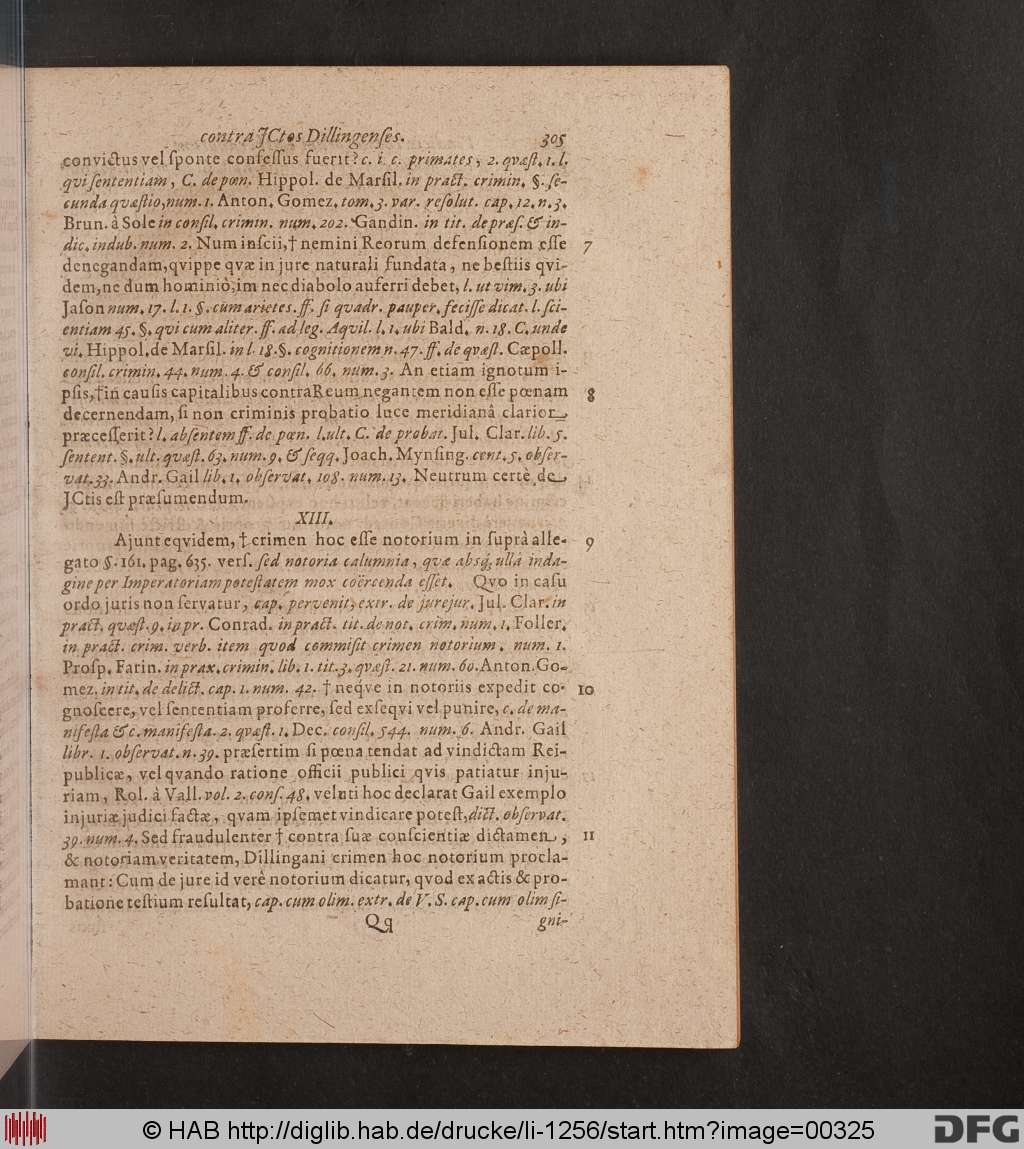 contra JCtos Dillingenses. 305
convictus vel sponte confessus fuerit? c. i. c. primates, 2. qvæst. 1. l.
qui sententiam, C. de pœn. Hippol. de Marsil. in pract. crimin. §. se-
cunda quæstio, num. 1. Anton. Gomez. tom. 3. var. resolut. cap. 12. n. 3.
Brun. â Sole in consil. crimin. num. 202. Gandin. in tit. de præs. & in-
dic. indub. num. 2. Num inscii, † nemini Reorum defensionem esse 7
denegandam, qvippe qvæ in jure naturali fundata, ne bestiis qvi-
dem, ne dum hominiò; im nec diabolo auferri debet, l. ut vim. 3. ubi
Jason num. 17. l. 1. §. cum arietes. ff. si quadr. pauper. fecisse dicat. l. sci-
entiam 45. §. qvi cum aliter. ff. ad leg. Aqvil. l. 1. ubi Bald. n. 18. C. unde
vi. Hippol. de Marsil. in l. 18. §. cognitionem n. 47. ff. de qvæst. Cæpoll.
consil. crimin. 44. num. 4. & consil. 66. num. 3. An etiam ignotum i-
psis, † in causis capitalibus contra Reum negantem non esse pœnam 8
decernendam, si non criminis probatio luce meridianâ clarior
præcesserit? l. absentem ff. de pœn. l. ult. C. de probat. Jul. Clar. lib. 5.
sentent. §. ult. quæst. 63. num. 9. & seqq. Joach. Mynsing. cent. 5. obser-
vat. 33. Andr. Gail lib. 1. observat. 108. num. 13. Neutrum certè de
JCtis est præsumendum.
XIII.
Ajunt eqvidem, † crimen hoc esse notorium in suprà alle- 9
gato §. 161. pag. 635. vers. sed notoria calumnia, quæ absq; ullâ inda-
gine per Imperatoriam potestatem mox coërcenda esset. Qvo in casu
ordo juris non servatur, cap. pervenit, extr. de jurejur. Jul. Clar. in
pract. quæst. 9. in pr. Conrad. in pract. tit. de not. crim. num. 1. Foller.
in pract. crim. verb. item quod commisit crimen notorium. num. 1.
Prosp. Farin. in prax. crimin. lib. 1. tit. 3. qvæst. 21. num. 60. Anton. Go-
mez. in tit. de delict. cap. 1. num. 42. † neqve in notoriis expedit co- 10
gnoscere, vel sententiam proferre, sed exseqvi vel punire, c. de ma-
nifesta & c. manifesta. 2. quæst. 1. Dec. consil. 544. num. 6. Andr. Gail
libr. 1. observat. n. 39. præsertim si pœna tendat ad vindictam Rei-
publicæ, vel qvando ratione officii publici qvis patiatur inju-
riam, Rol. à Vall. vol. 2. cons. 48. veluti hoc declarat Gail exemplo
injuriæ judici factæ, qvam ipsemet vindicare potest, dict. observat.
39. num. 4. Sed fraudulenter † contra suæ conscientiæ dictamen, 11
& notoriam veritatem, Dillingani crimen hoc notorium procla-
mant: Cum de jure id verè notorium dicatur, qvod ex actis & pro-
batione testium resultat, cap. cum olim. extr. de V. S. cap. cum olim si-
Qq gni-
© HAB http://diglib.hab.de/drucke/li-1256/start.htm?image=00325
DFG